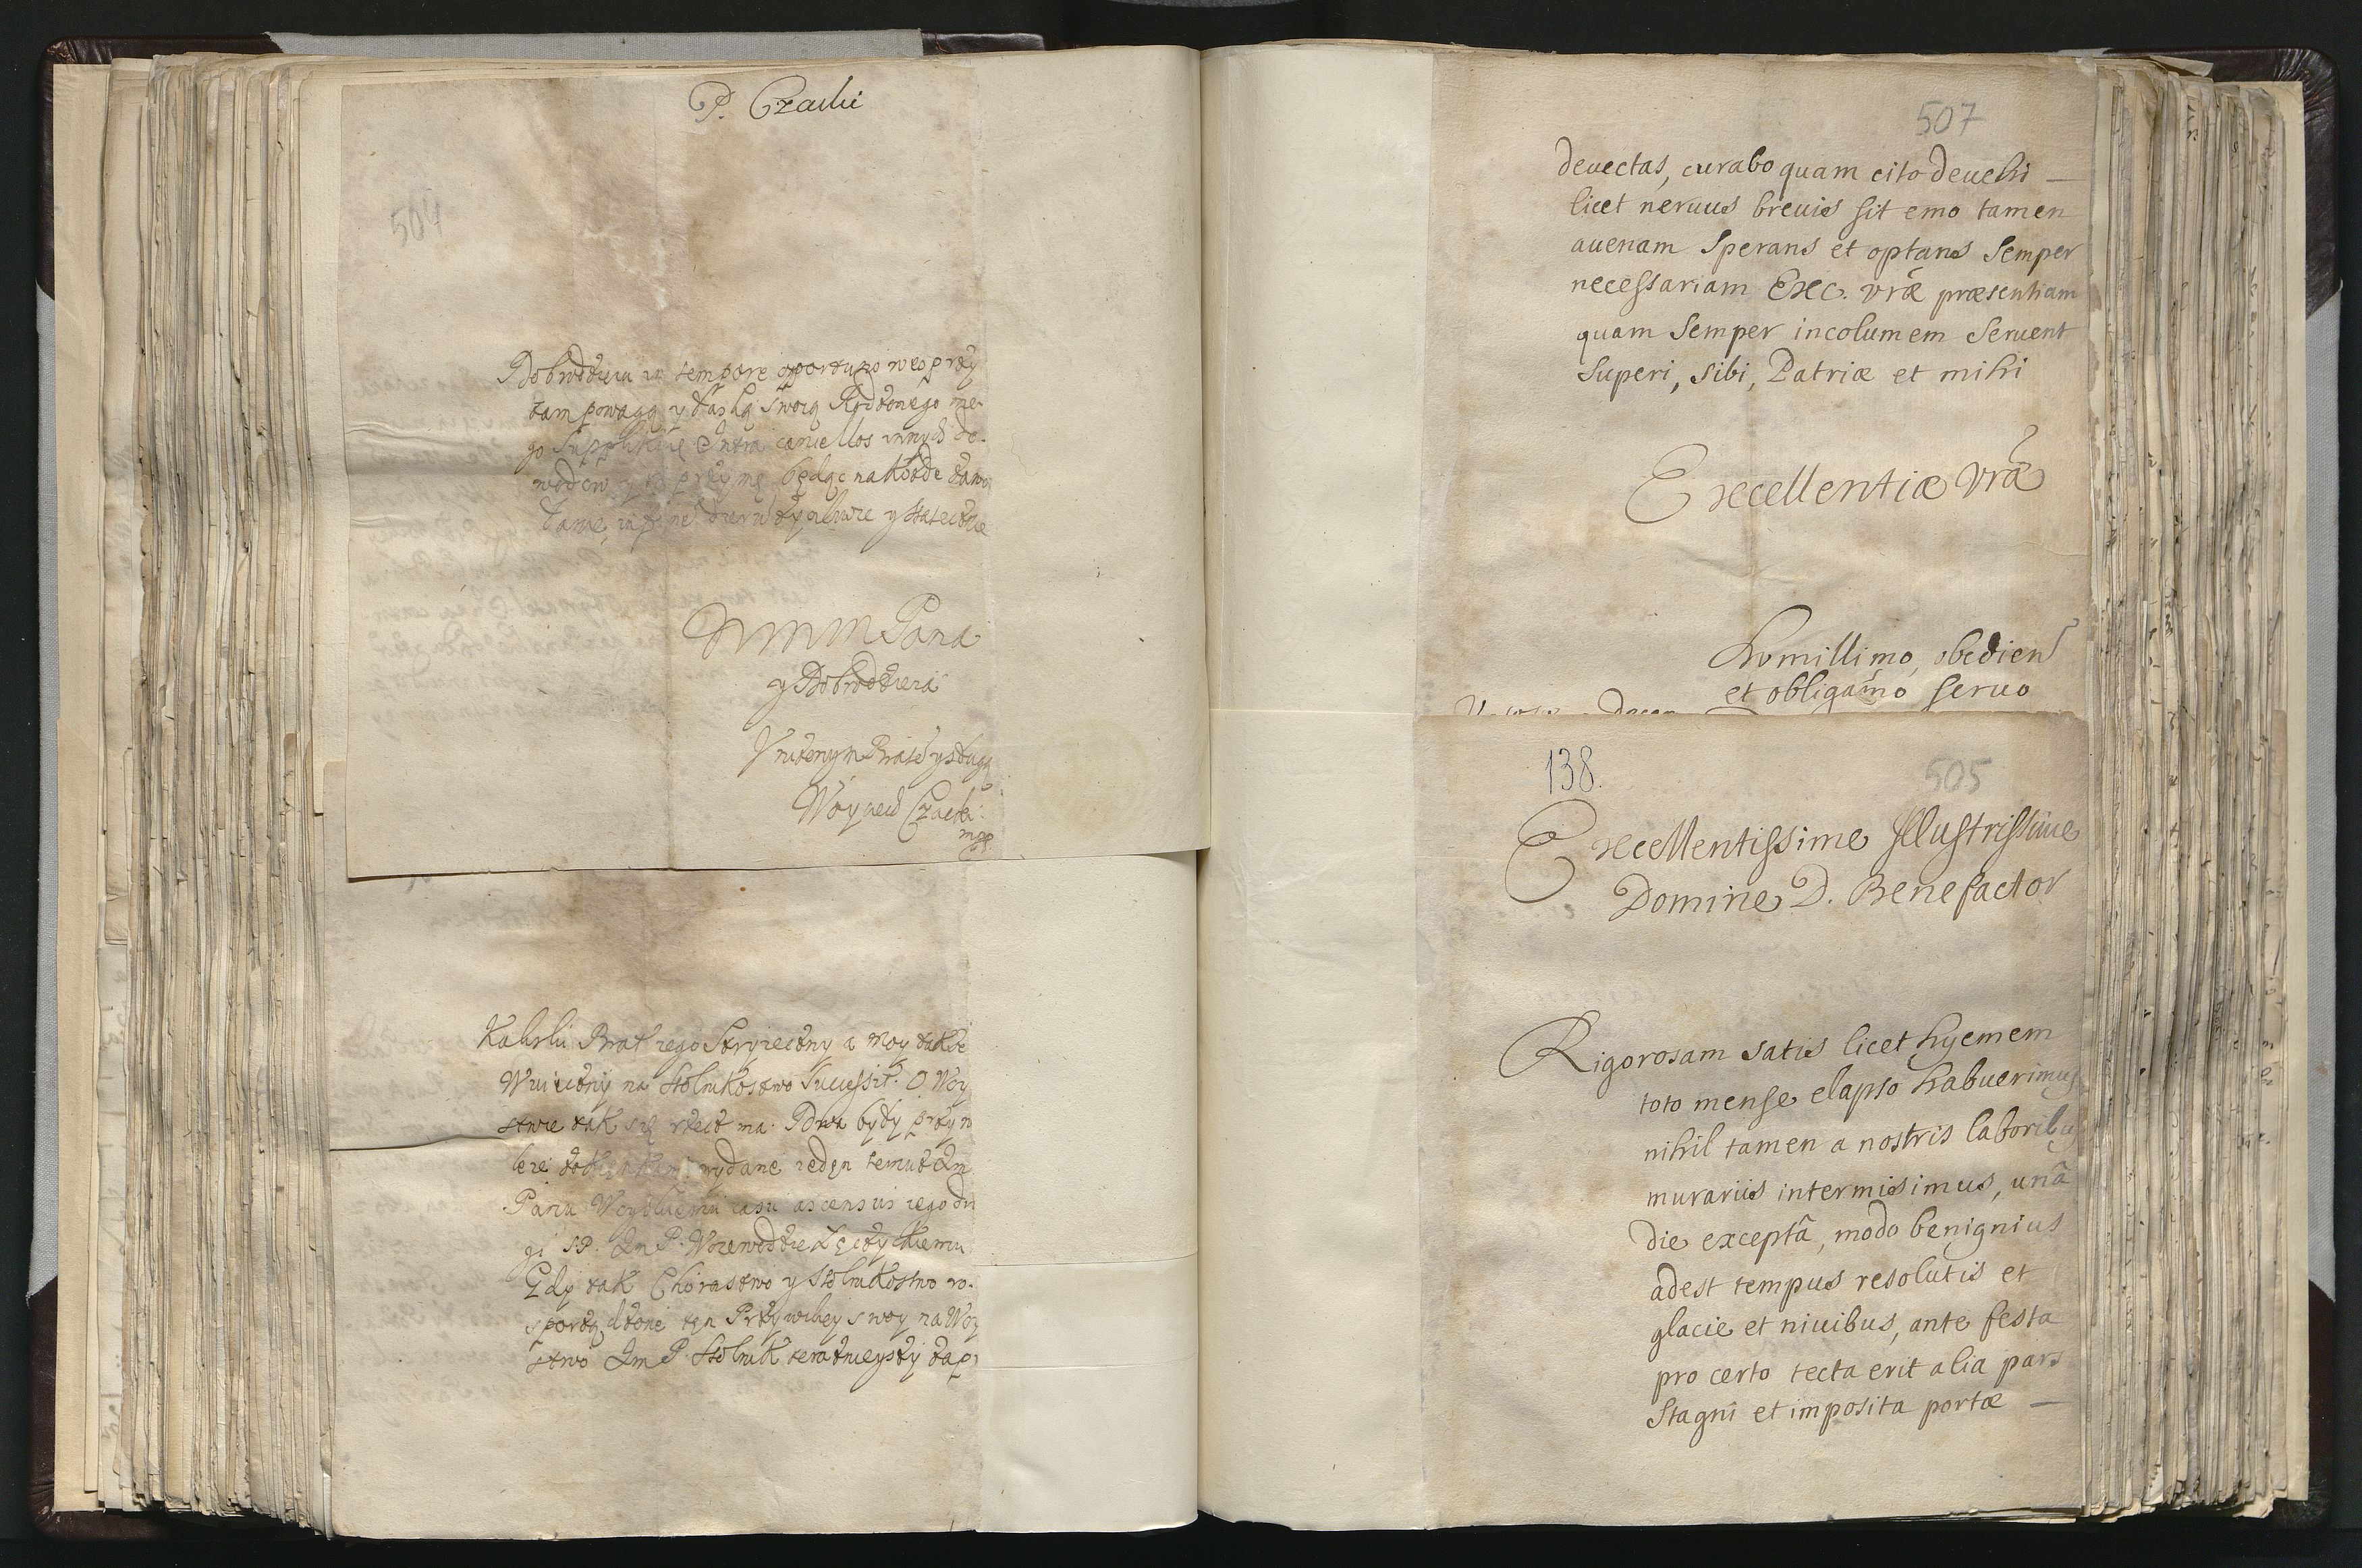 P. Czacki
504
Dobrodzieiu in tempore oportuno wesprzy
tam powagą y łaską swoią Rodzonego me-
go intra cancellos innych do-
wodow y przymę będąc na kożde zawo
łanie
WMM Pana
y Dobrodzieia
Uniżonym Bratē y sługą
Woyciech Czacki
mpp
Kalski Brat iego Stryieczny a moy także
Wuieczny na Stolnikostwo Successit. O Woy
stwie tak się rzecz ma. Dwa były przyw
leie wydane ieden temuż Im
Panu casu ascensus iego dru
gi SP. Im P. Woiewodzie Łęczyckiemu
Gdy tak Chorastwo y Stolnikostwo ro-
sporządzone ten Przywiley swoy na Woy
stwo Im P. Stolnik teraznieyszy zap
507
deuectas, curabo quam cito deuehi —
licet neruus breuis sit emo tamen
auenam sperans et optans semper
necessariam Exec. vræ præsentiam
quam semper incolumem seruent
Superi, sibi, Patriæ et mihi
Excellentiæ Vrã
humillimo, obedien
et obligamo seruo
138.
505
Excellentissime Illustrissime
Domine D. Benefactor
Rigorosam satis licet hyemem
toto mense elapso habuerimus
nihil tamen a nostris laboribus
murariis intermisimus, unâ
die exceptâ, modo benignius
adest tempus resolutis et
glacie et niuibus, ante festa
pro certo tecta erit alia pars
Stagni et imposita portæ —